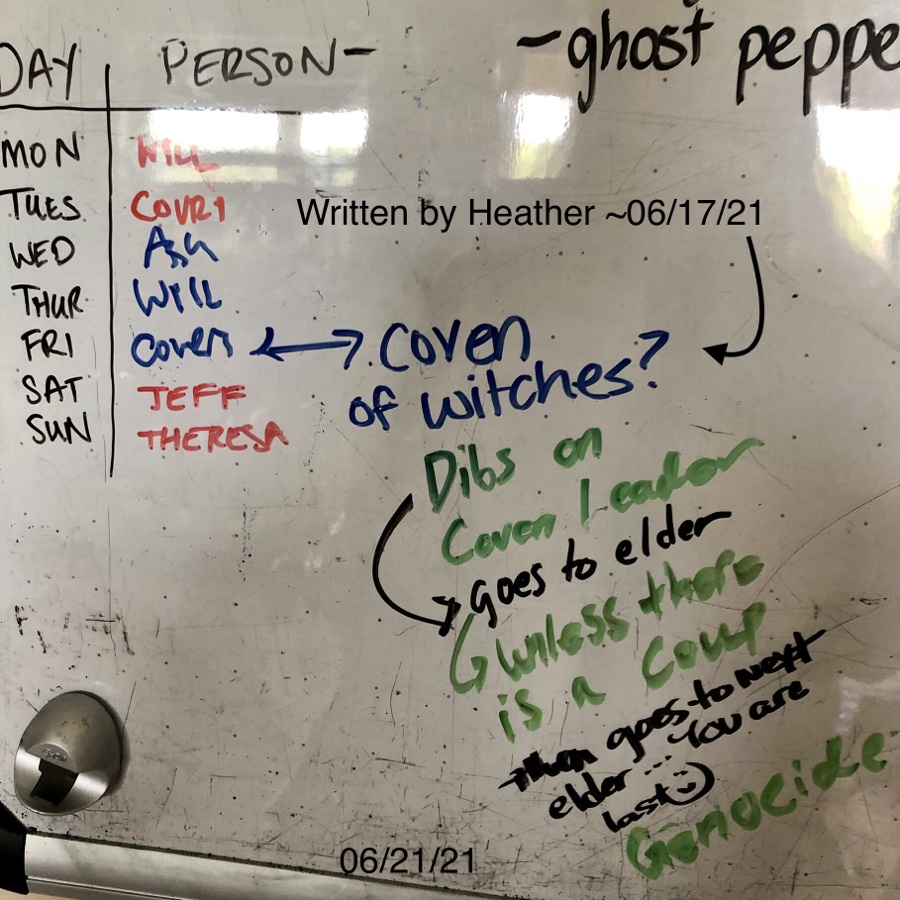 DAY PERSON-
-ghost peppe
MON WILL
TUES COURT
WED Ash
THUR WILL
FRI Coven
SAT JEFF
SUN THERESA
Written by Heather ~06/17/21
coven
of witches?
Dibs on
Coven Leader
goes to elder
unless there
is a coup
then goes to next
elder ... You are
last :)
Genocide
06/21/21